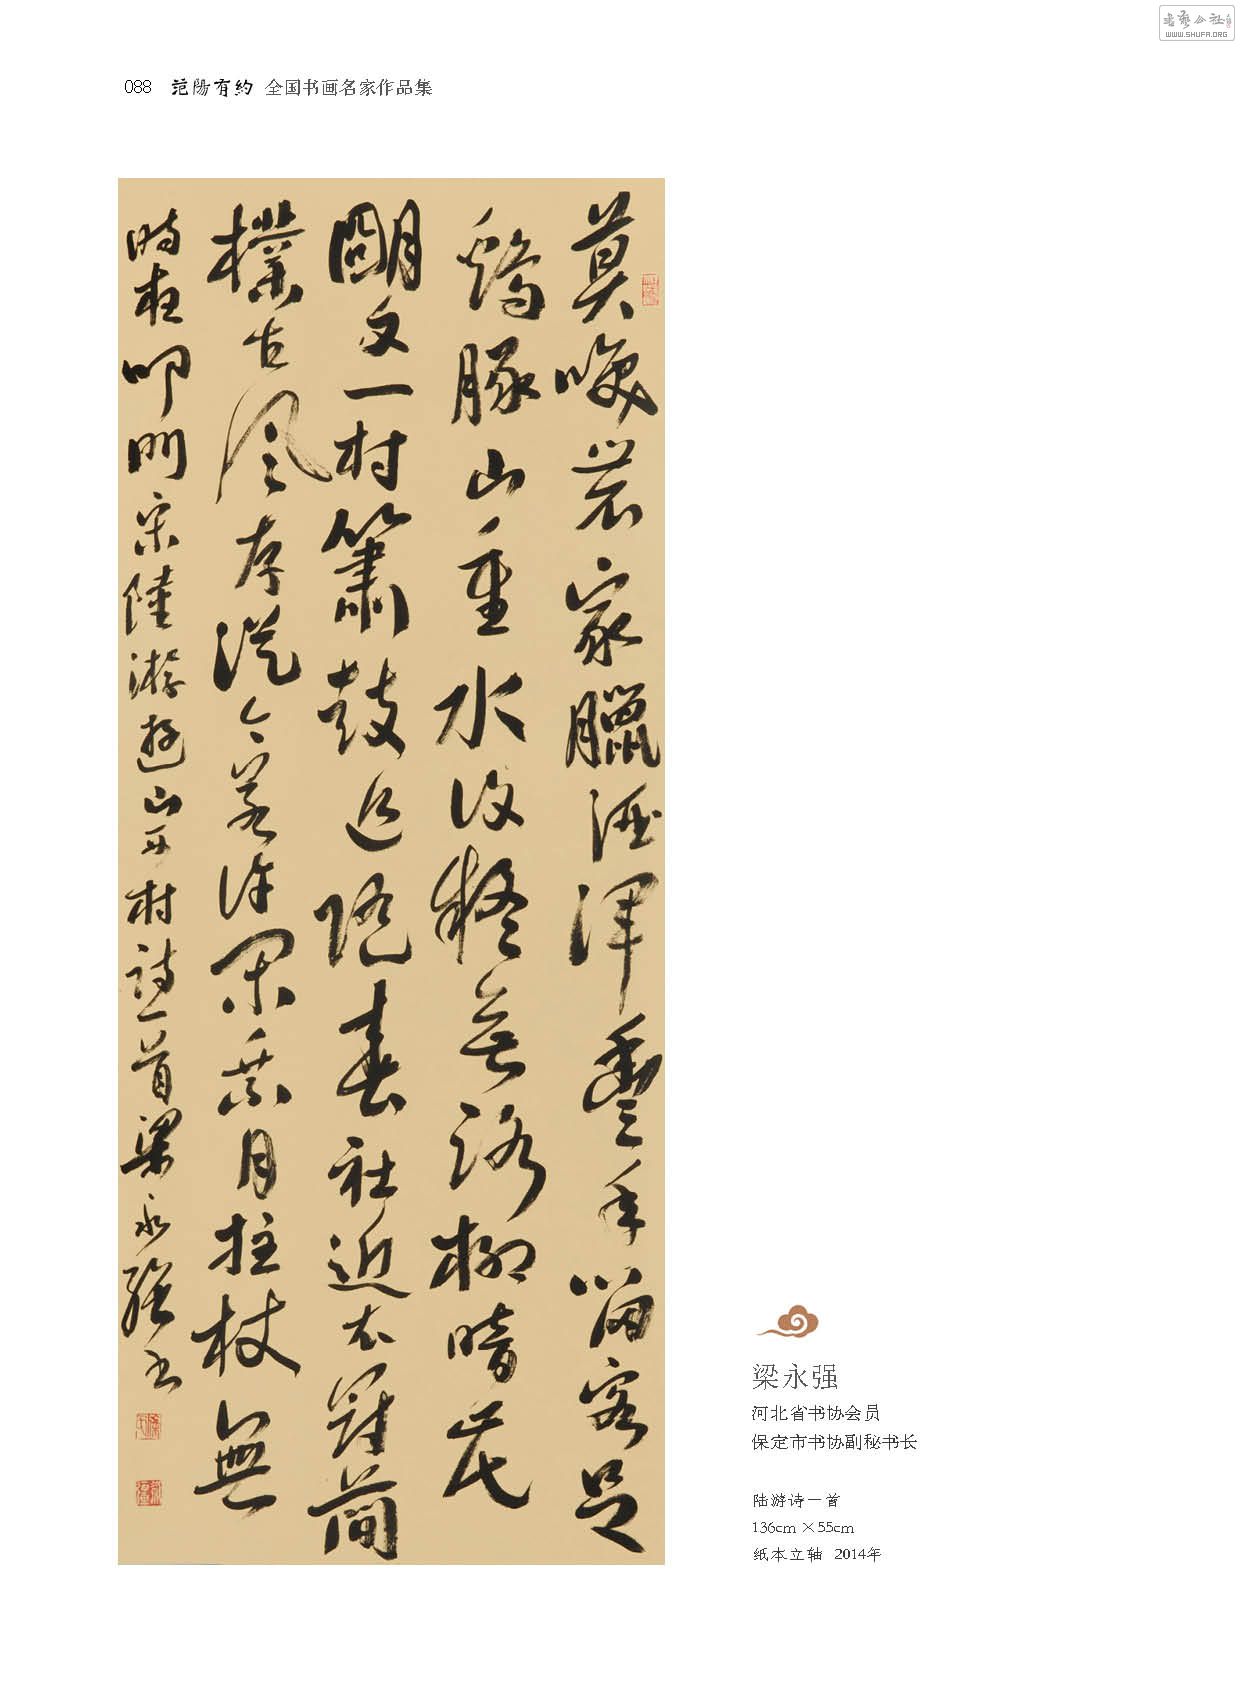 088 范陽有約 全国书画名家作品集
莫咲農家臘酒渾豐年留客足
鷄豚山重水複疑無路柳暗花
朙又一村簫鼓追随春社近衣冠簡
樸古風存從今若許閑乘月拄杖無
時夜叩門宋陸游遊山西村詩一首梁永强書
梁永强
河北省书协会员
保定市书协副秘书长
陆游诗一首
136cm×55cm
纸本立轴 2014年
书艺公社
WWW.SHUFA.ORG